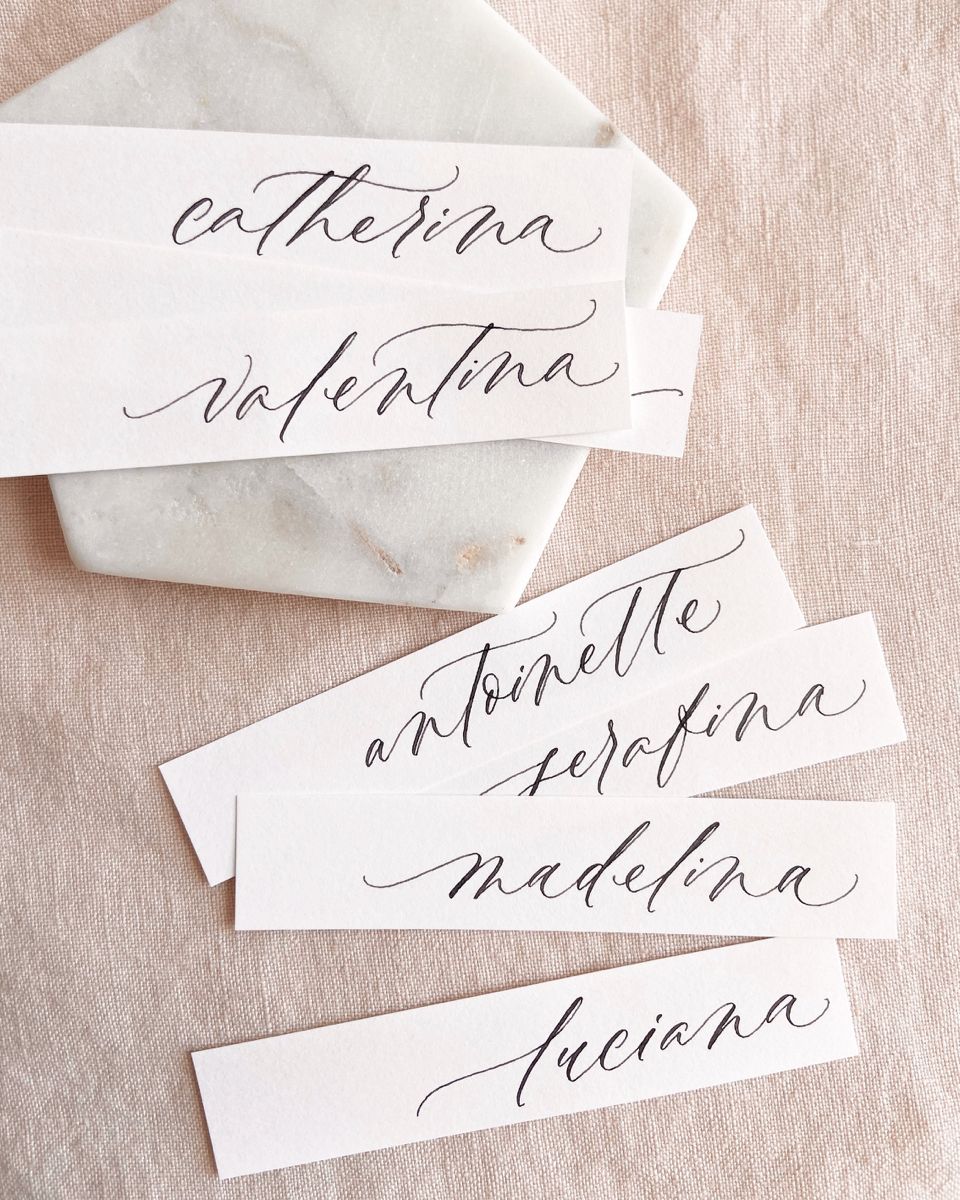 catherina
valentina
antoinette
serafina
madelina
luciana